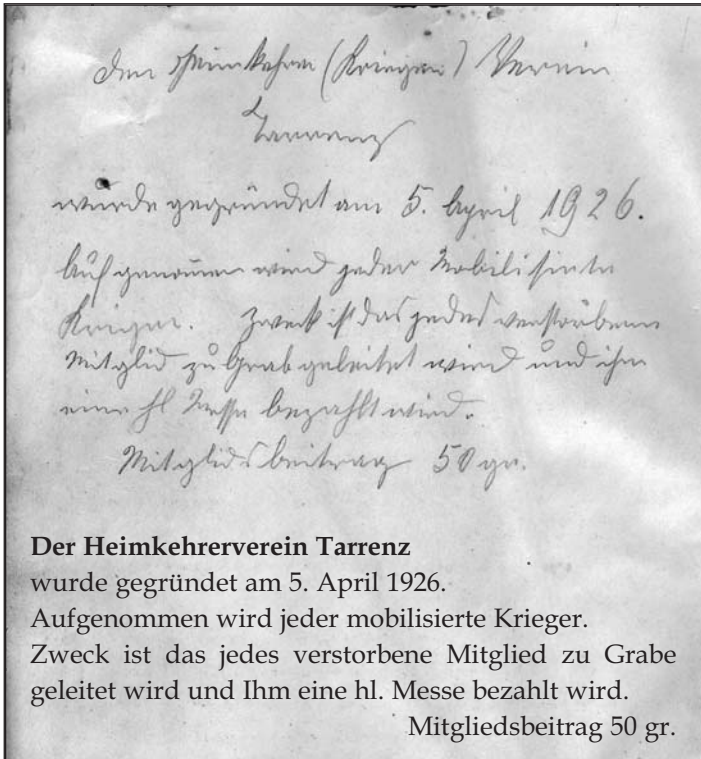 Der Heimkehrer (Krieger) Verein
Tarrenz
wurde gegründet am 5. April 1926.
Aufgenomen wird jeder Mobilisierte
Krieger. Zweck ist das jedes verstorbene
Mitglid zu Grab geleitet wird und ihm
eine hl Messe bezahlt wird.
Mitglidsbeitrag 50 gr.
Der Heimkehrerverein Tarrenz
wurde gegründet am 5. April 1926.
Aufgenommen wird jeder mobilisierte Krieger.
Zweck ist das jedes verstorbene Mitglied zu Grabe
geleitet wird und Ihm eine hl. Messe bezahlt wird.
Mitgliedsbeitrag 50 gr.